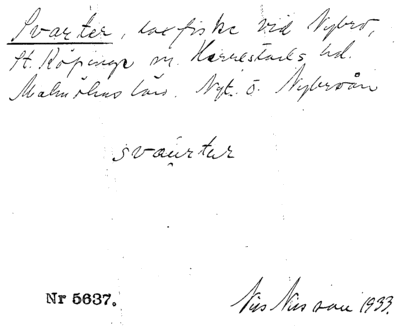 Svarter, laxfiske vid Nybro,
St. Köpinge sn. Herrestads hd.
Malmöhus län. Nyt. ö. Nybroån
svaurtur
Nr 5637.
Nils Nilsson 1933.